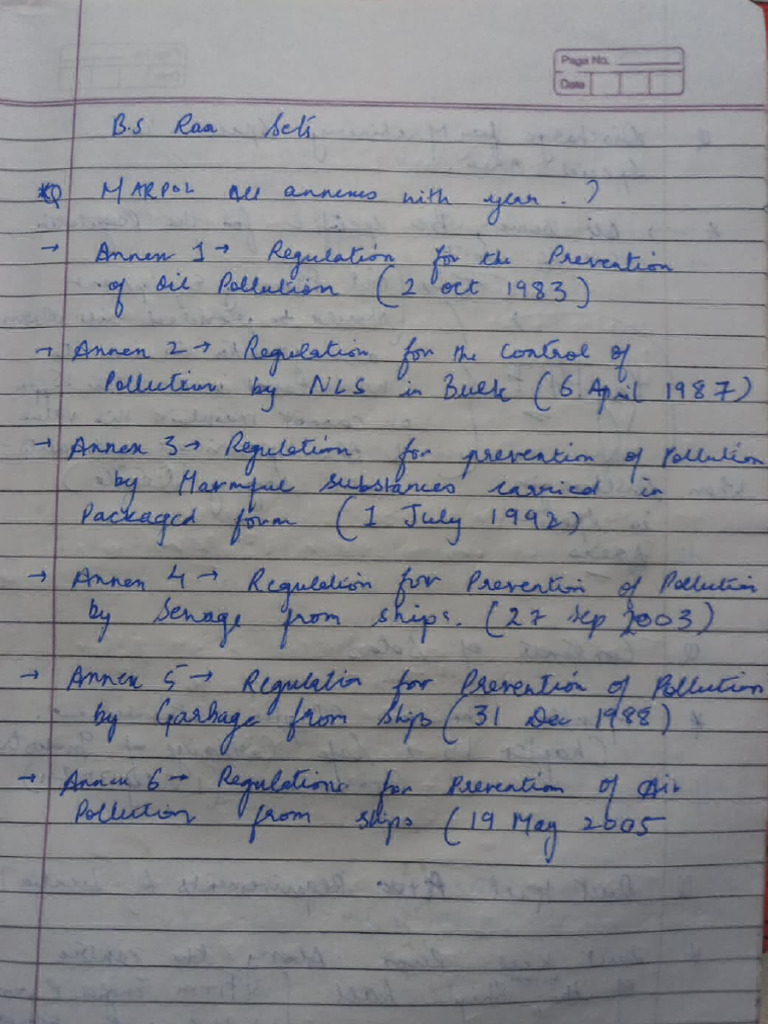 Page No.
Date
B.S Raa Sets
*Q MARPOL all annexes with year . ?
→ Annex 1 → Regulation for the Prevention
of Oil Pollution (2 Oct 1983)
→ Annex 2 → Regulation for the control of
Pollution by NLS in Bulk (6 April 1987)
→ Annex 3 → Regulation for prevention of Pollution
by Harmful substances carried in
Packaged form (1 July 1992)
→ Annex 4 → Regulation for Prevention of Pollution
by Sewage from ships. (27 Sep 2003)
→ Annex 5 → Regulation for Prevention of Pollution
by Garbage from ships (31 Dec 1988)
→ Annex 6 → Regulations for Prevention of Air
Pollution from ships (19 May 2005